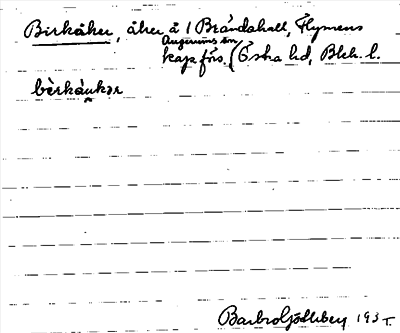 Birkåker, åker å 1 Brändahall, Flymens
Augerums sn
kapförs. (Östra hd, Blek. l.
bèrkåukər
Barbro Götlberg 193